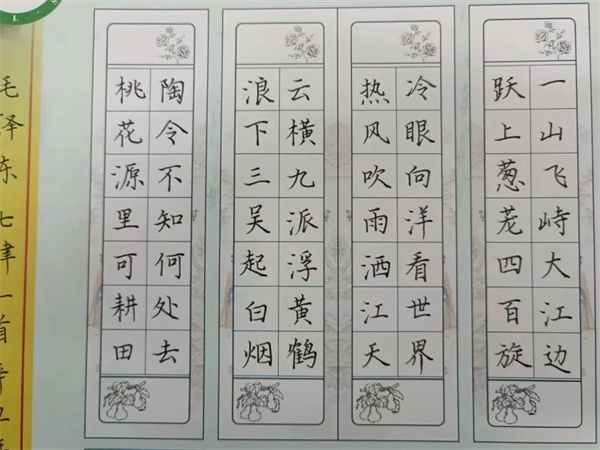 一山飞峙大江边
跃上葱茏四百旋
冷眼向洋看世界
热风吹雨洒江天
云横九派浮黄鹤
浪下三吴起白烟
陶令不知何处去
桃花源里可耕田
毛泽东七律一首